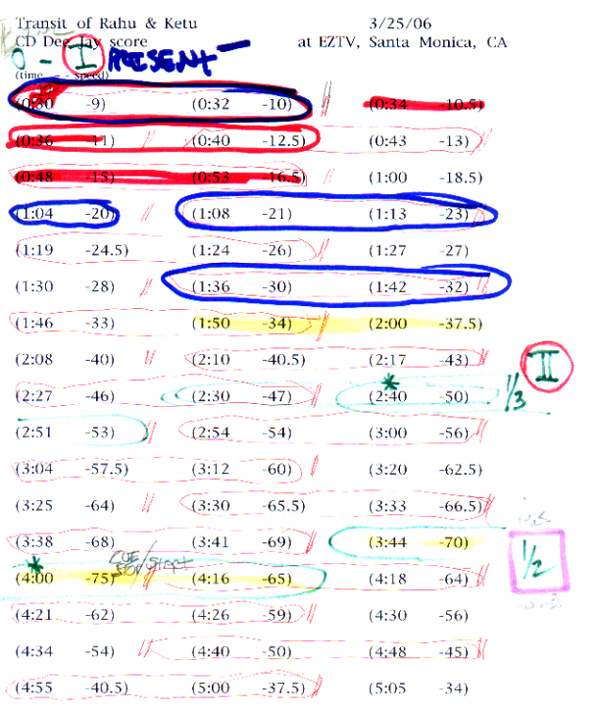 Transit of Rahu & Ketu 3/25/06
CD Dee Jay score at EZTV, Santa Monica, CA
0 - I PRESENT
(time -- speed)
(0:30 -9) (0:32 -10) // (0:34 -10.5)
(0:36 -11) // (0:40 -12.5) (0:43 -13) //
(0:48 -15) (0:53 -16.5) // (1:00 -18.5)
(1:04 -20) // (1:08 -21) (1:13 -23) //
(1:19 -24.5) (1:24 -26) // (1:27 -27)
(1:30 -28) // (1:36 -30) (1:42 -32) //
(1:46 -33) (1:50 -34) // (2:00 -37.5)
(2:08 -40) // (2:10 -40.5) (2:17 -43) // II
(2:27 -46) (2:30 -47) // * (2:40 -50) 1/3
(2:51 -53) // (2:54 -54) (3:00 -56) //
(3:04 -57.5) (3:12 -60) // (3:20 -62.5)
(3:25 -64) // (3:30 -65.5) (3:33 -66.5) //
(3:38 -68) (3:41 -69) // (3:44 -70) 1/2
* CUE/START
(4:00 -75) // (4:16 -65) (4:18 -64) //
(4:21 -62) (4:26 -59) // (4:30 -56)
(4:34 -54) // (4:40 -50) (4:48 -45) //
(4:55 -40.5) (5:00 -37.5) // (5:05 -34)